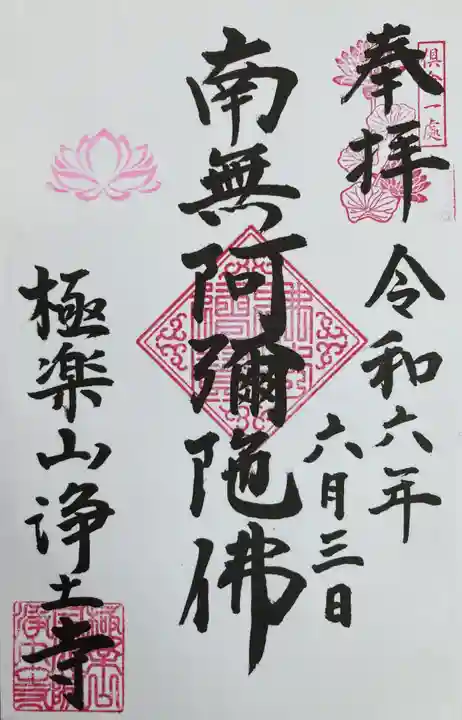 奉拝
倶会一處
令和六年
六月三日
南無阿彌陀佛
極楽山浄土寺